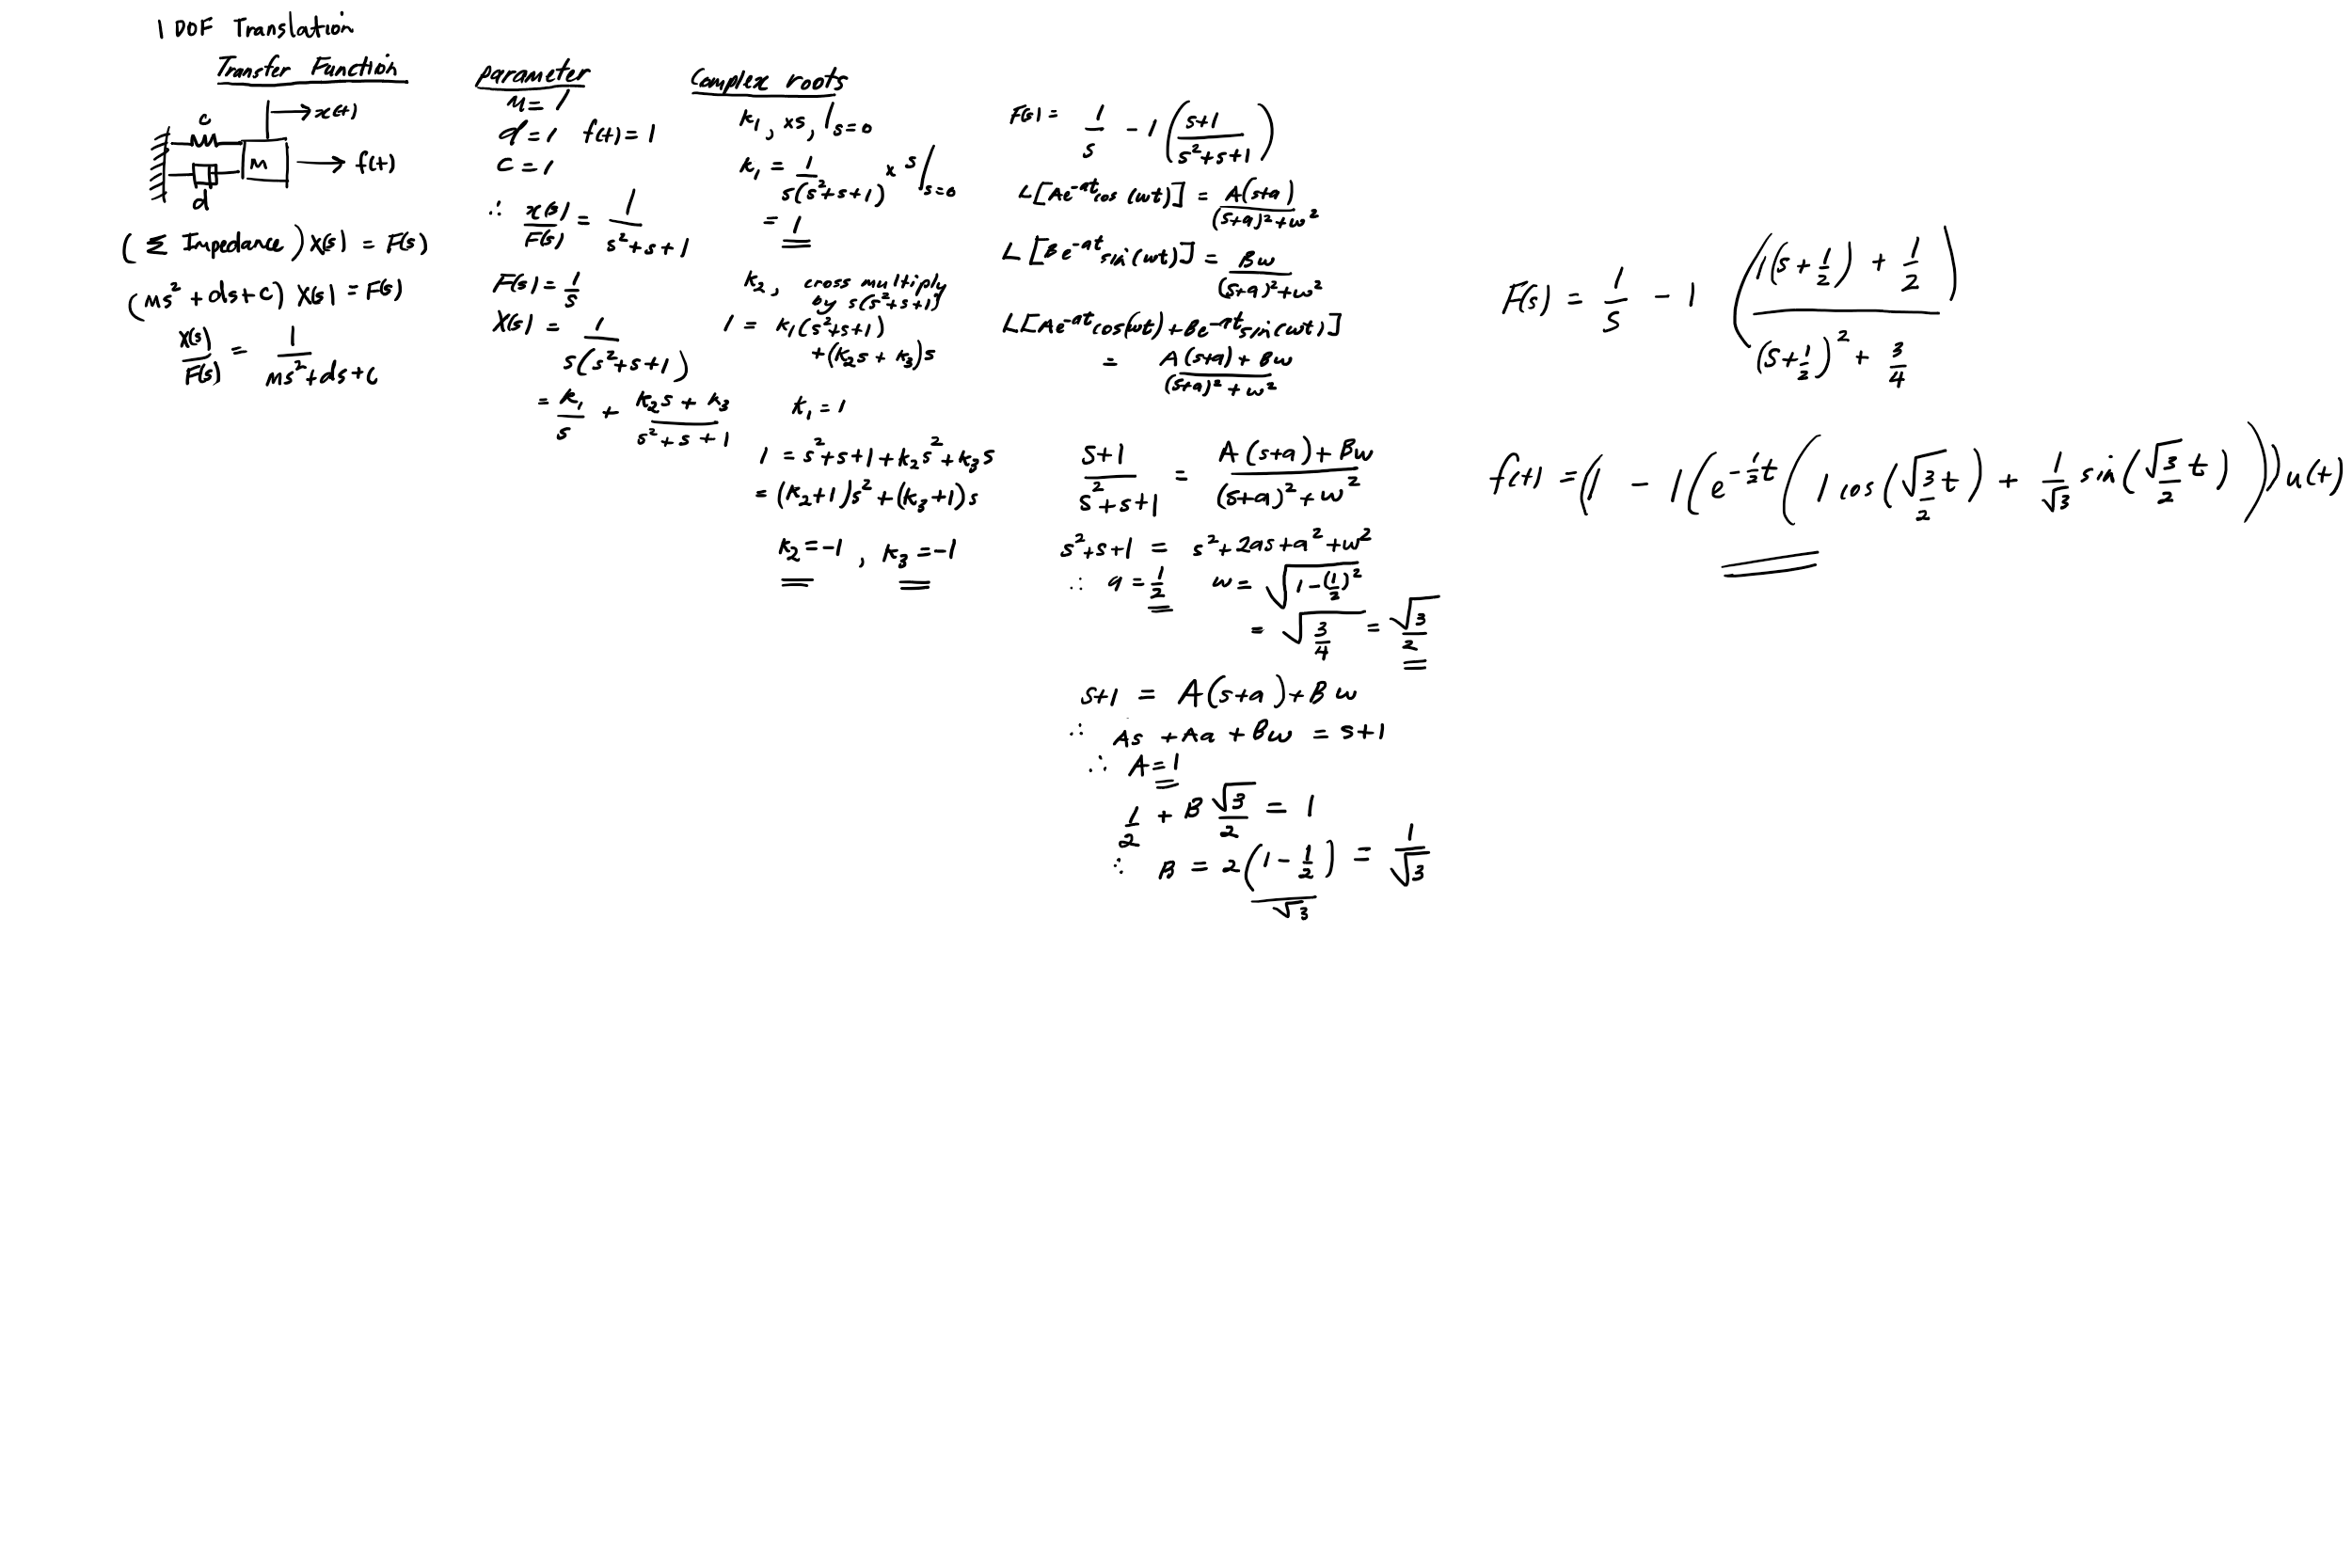 1 DOF Translation
Transfer Function
x(t)
c
M
f(t)
d
(Σ Impedance) X(s) = F(s)
(Ms² + ds + c) X(s) = F(s)
X(s)/F(s) = 1/(Ms² + ds + c)
parameter
M = 1
d = 1 f(t) = 1
c = 1
∴ x(s)/F(s) = 1/(s² + s + 1)
F(s) = 1/s
X(s) = 1/(s(s² + s + 1))
= k₁/s + (k₂s + k₃)/(s² + s + 1)
Complex roots
k₁, xs, |s=0
k₁ = 1/(s(s² + s + 1)) x s |s=0
= 1
k₂, cross multiply
by s(s² + s + 1)
1 = k₁(s² + s + 1)
+ (k₂s + k₃)s
k₁ = 1
1 = s² + s + 1 + k₂s² + k₃s
= (k₂+1)s² + (k₃+1)s
k₂ = -1, k₃ = -1
F(s) = 1/s - 1((s+1)/(s² + s + 1))
L[Ae^-at cos(wt)] = A(s+a)/((s+a)² + w²)
L[Be^-at sin(wt)] = Bw/((s+a)² + w²)
L[Ae^-at cos(wt) + Be^-at sin(wt)]
= (A(s+a) + Bw)/((s+a)² + w²)
(s+1)/(s² + s + 1) = (A(s+a) + Bw)/((s+a)² + w²)
s² + s + 1 = s² + 2as + a² + w²
∴ a = 1/2 w = √(1 - (1/2)²)
= √(3/4) = √3/2
s+1 = A(s+a) + Bw
∴ As + Aa + Bw = s+1
∴ A = 1
1/2 + B √3/2 = 1
∴ B = 2(1 - 1/2)/√3 = 1/√3
F(s) = 1/s - 1 ((1(s + 1/2) + 1/2)/((s + 1/2)² + 3/4))
f(t) = (1 - 1(e^-1/2t (1 cos(√3/2 t) + 1/√3 sin(√3/2 t)))) u(t)